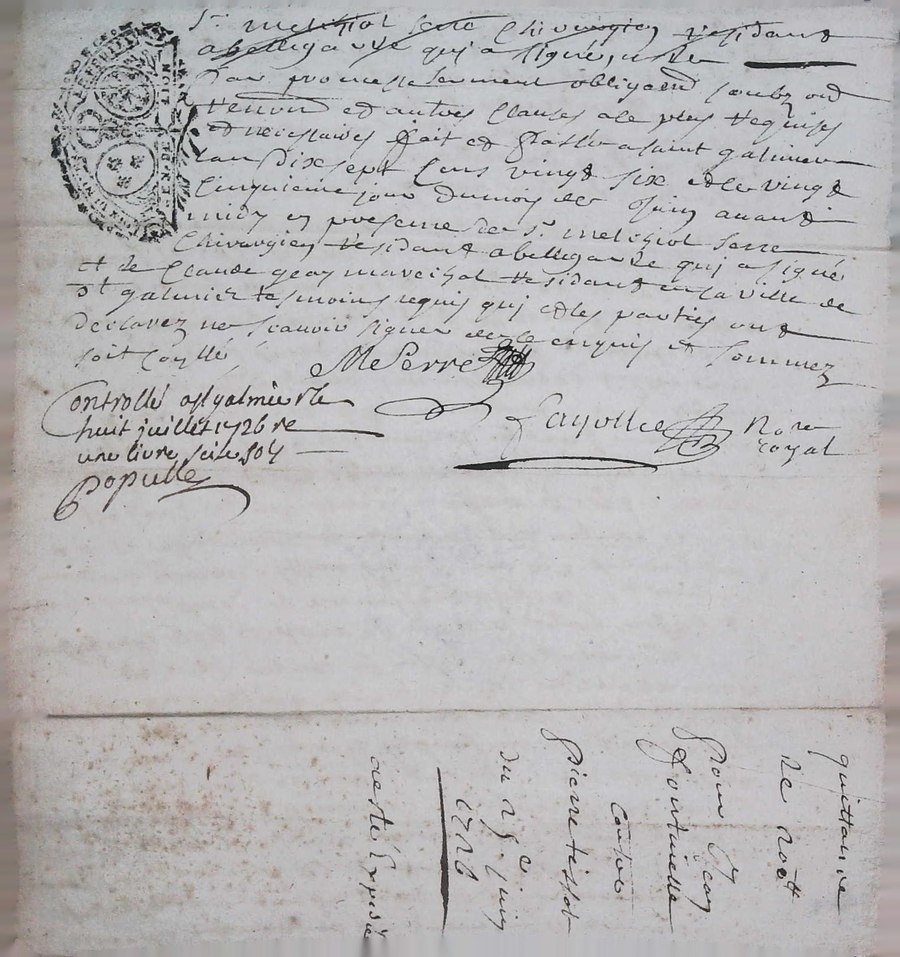 Sr melchiol serre Chirurgien residant
abellegarde qui a signé
par promesse serment obligaon soubz on
renon et autres clauses a le plus requises
et necessaires fait et passé a saint galmier
lan dix sept cens vingt six et le vingt
cinquieme jour du mois de Juin avant
midy en presence de sr melchiol serre
Chirurgien residant abellegarde qui a signé
et de Claude geay marechal residant en la ville de
st galmier tesmoins requis qui et les parties ont
declarez ne scavoir signer de ce enquis et sommez
soit coyllé
MeSerre
Controllé a st galmier le
huit juillet 1726 re
une livre seize sols
populle
Fayolle Nore
royal
FERME
quittance
de
pour Jean
fontanelle
contre
pierre tissot
du 25e Juin
1726
a esté Expedié